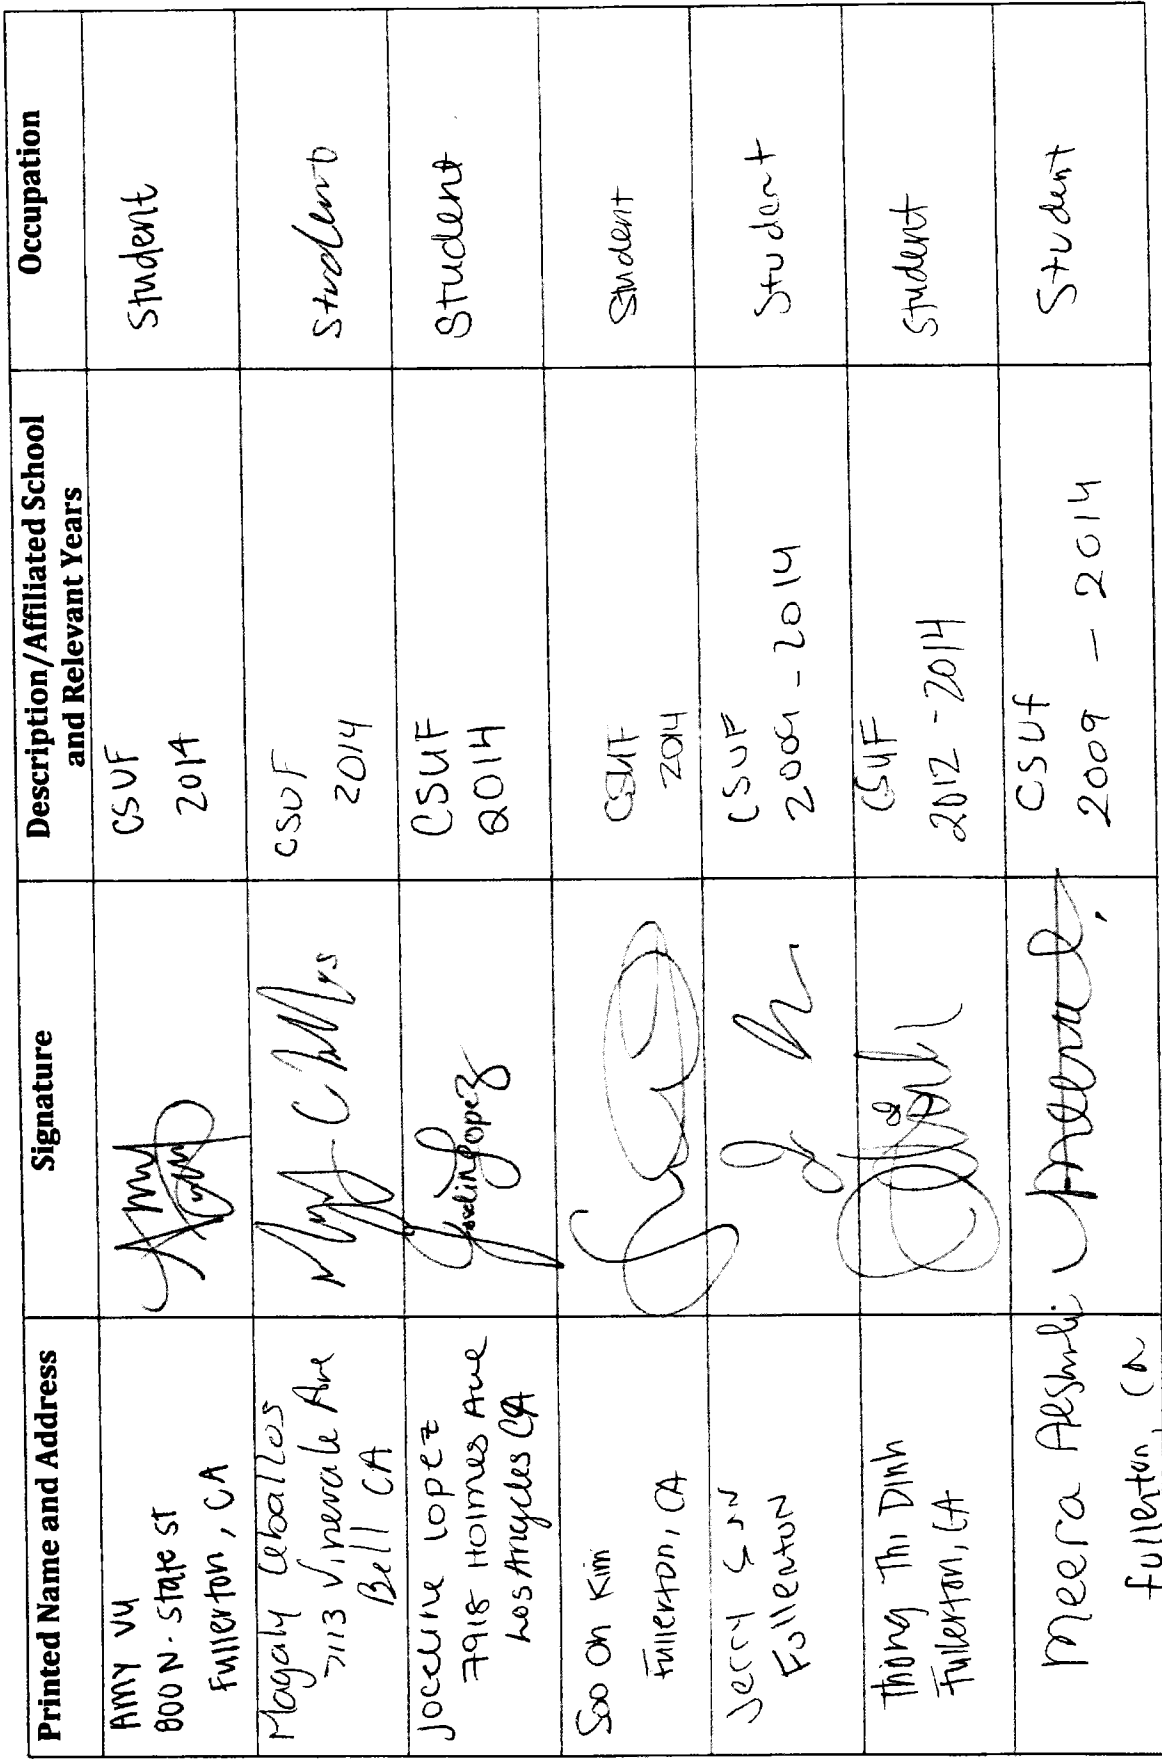 Printed Name and Address
Signature
Description/Affiliated School
and Relevant Years
Occupation
AMY VU
800 N. State ST
Fullerton, CA
CSUF
2014
Student
Magaly Ceballos
7113 Vinevale Ave
Bell CA
CSUF
2014
Student
Joceline Lopez
7918 Holmes Ave
Los Angeles CA
Joceline Lopez
CSUF
2014
Student
Soo Oh Kim
Fullerton, CA
CSUF
2014
Student
Jerry Sun
Fullerton
CSUF
2009 - 2014
Student
Thiong Thi Dinh
Fullerton, CA
CSUF
2012 - 2014
Student
Meera
Fullerton, CA
CSUf
2009 - 2014
Student